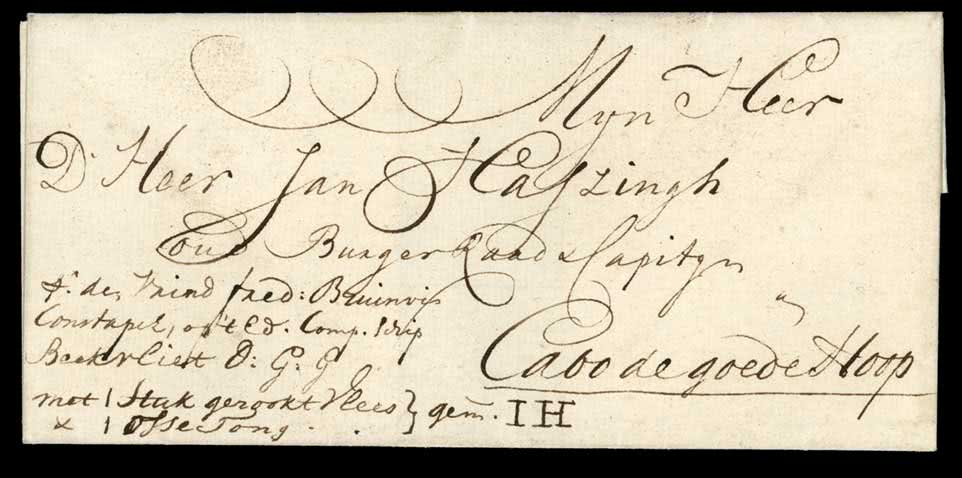 Myn Heer
D' Heer Jan Hassingh
Oud Burger Raad & Capityn
pr. den Vriend fred: Bruinvis
Constapel, op 't Ed. Comp. Schip
Beekvliet D: G: G
met 1 stuk gerookt Vlees } gem. IH
& 1 Osse Tong.
Cabo de goede Hoop